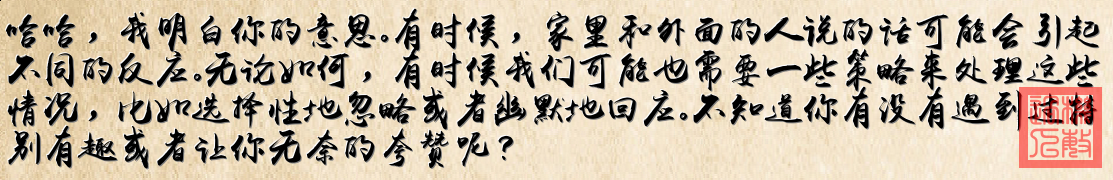 哈哈，我明白你的意思。有时候，家里和外面的人说的话可能会引起
不同的反应。无论如何，有时候我们可能也需要一些策略来处理这些
情况，比如选择性地忽略或者幽默地回应。不知道你有没有遇到过特
别有趣或者让你无奈的夸赞呢？